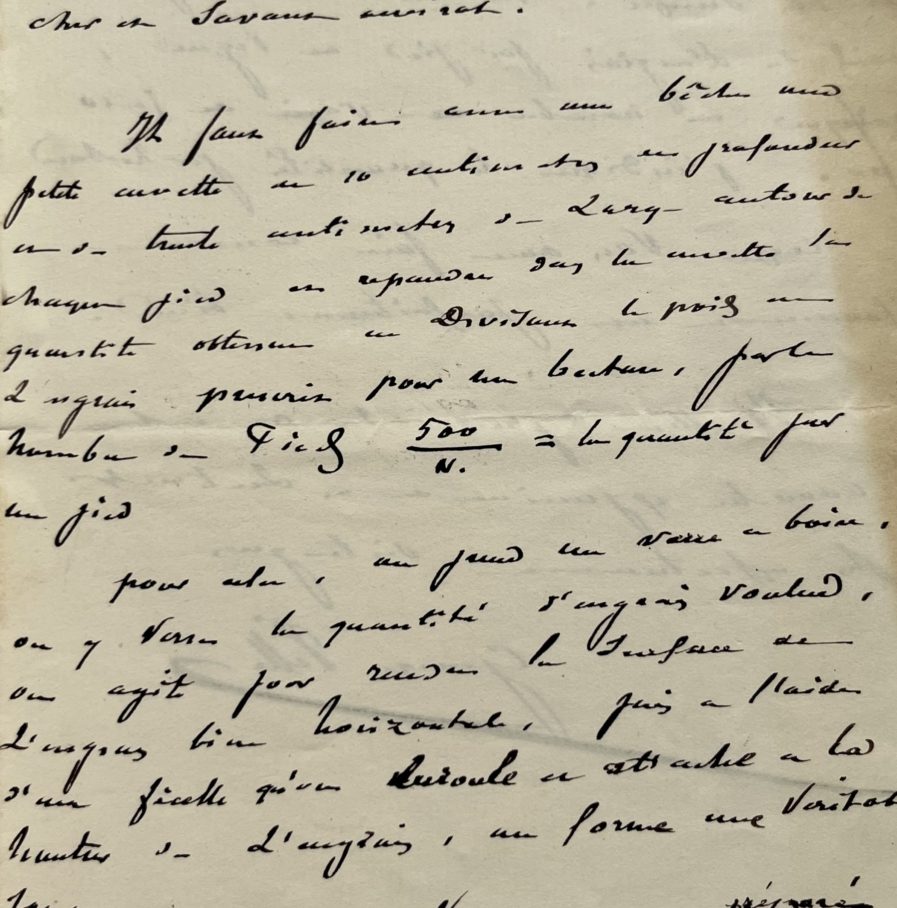 cher et Savant
Il faut faire avec une bêche une
petite cuvette de 10 centimetres en profondeur
et de trente centimetres de Larg autour de
chaque pied et repandre dans la cuvette la
quantité obtenue en Divisant le poids
d'engrais prescrit pour un hectare, par le
nombre de Pieds 500/N. = la quantité par
un pied
pour cela, on prend un verre a boire,
on y verse la quantité d'engrais voulue,
on agite pour rendre la Surface
d'engrais bien horizontale, puis a l'aide
d'une ficelle qu'on enroule et attache a la
hauteur de L'engrais, on forme une Veritab